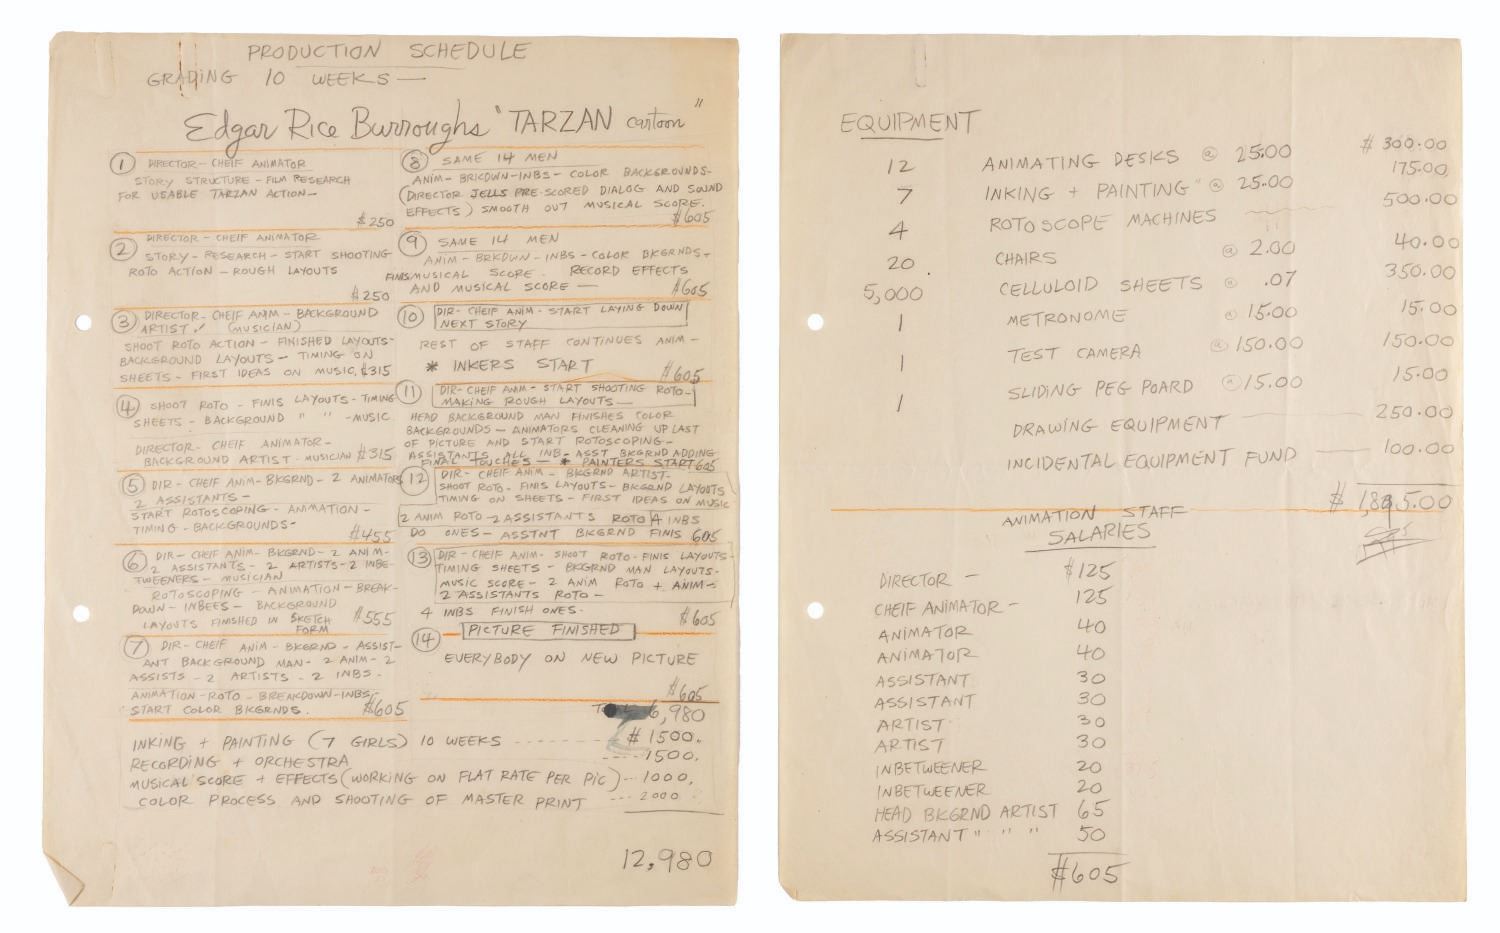 PRODUCTION SCHEDULE
GRADING 10 WEEKS —
Edgar Rice Burroughs "TARZAN cartoon"
1 DIRECTOR - CHEIF ANIMATOR
STORY STRUCTURE - FILM RESEARCH
FOR USABLE TARZAN ACTION -
$250
2 DIRECTOR - CHEIF ANIMATOR
STORY - RESEARCH - START SHOOTING
ROTO ACTION - ROUGH LAYOUTS
$250
3 DIRECTOR - CHEIF ANIM - BACKGROUND
ARTIST. (MUSICIAN)
SHOOT ROTO ACTION - FINISHED LAYOUTS -
BACKGROUND LAYOUTS - TIMING ON
SHEETS - FIRST IDEAS ON MUSIC. $315
4 SHOOT ROTO - FINIS LAYOUTS - TIMING
SHEETS - BACKGROUND " " - MUSIC
DIRECTOR - CHEIF ANIMATOR -
BACKGROUND ARTIST - MUSICIAN $315
5 DIR - CHEIF ANIM - BKGRND - 2 ANIMATORS
2 ASSISTANTS -
START ROTOSCOPING - ANIMATION -
TIMING - BACKGROUNDS -
$455
6 DIR - CHEIF ANIM - BKGRND - 2 ANIM -
2 ASSISTANTS - 2 ARTISTS - 2 INBE-
TWEENERS - MUSICIAN
ROTOSCOPING - ANIMATION - BREAK-
DOWN - INBEES - BACKGROUND
LAYOUTS FINISHED IN SKETCH
FORM $555
7 DIR - CHEIF ANIM - BKGRND - ASSIST-
ANT BACKGROUND MAN - 2 ANIM - 2
ASSISTS - 2 ARTISTS - 2 INBS -
ANIMATION - ROTO - BREAKDOWN - INBS -
START COLOR BKGRNDS. $605
8 SAME 14 MEN
ANIM - BRKDWN - INBS - COLOR BACKGROUNDS -
(DIRECTOR JELLS PRE-SCORED DIALOG AND SOUND
EFFECTS) SMOOTH OUT MUSICAL SCORE.
$605
9 SAME 14 MEN
ANIM - BRKDWN - INBS - COLOR BKGRNDS -
FINIS MUSICAL SCORE. RECORD EFFECTS
AND MUSICAL SCORE —
$605
10 DIR - CHEIF ANIM - START LAYING DOWN
NEXT STORY
REST OF STAFF CONTINUES ANIM -
* INKERS START
$605
11 DIR - CHEIF ANIM - START SHOOTING ROTO -
MAKING ROUGH LAYOUTS —
HEAD BACKGROUND MAN FINISHES COLOR
BACKGROUNDS - ANIMATORS CLEANING UP LAST
OF PICTURE AND START ROTOSCOPING -
ASSISTANTS ALL INB - ASST BKGRND ADDING
FINAL TOUCHES - * PAINTERS START 605
12 DIR - CHEIF ANIM - BKGRND ARTIST -
SHOOT ROTO - FINIS LAYOUTS - BKGRND LAYOUTS
TIMING ON SHEETS - FIRST IDEAS ON MUSIC
2 ANIM ROTO - 2 ASSISTANTS ROTO 4 INBS
DO ONES - ASSTNT BKGRND FINIS 605
13 DIR - CHEIF ANIM - SHOOT ROTO - FINIS LAYOUTS -
TIMING SHEETS - BKGRND MAN LAYOUTS -
MUSIC SCORE - 2 ANIM ROTO + ANIM -
2 ASSISTANTS ROTO -
4 INBS FINISH ONES -
$605
14 PICTURE FINISHED
EVERYBODY ON NEW PICTURE
$605
6,980
INKING + PAINTING (7 GIRLS) 10 WEEKS - - - - - - - $1500.
RECORDING + ORCHESTRA - - - - 1500.
MUSICAL SCORE + EFFECTS (WORKING ON FLAT RATE PER PIC) - - - 1000.
COLOR PROCESS AND SHOOTING OF MASTER PRINT - - - 2000
12,980
EQUIPMENT
12 ANIMATING DESKS @ 25.00 $ 300.00
7 INKING + PAINTING " @ 25.00 175.00
4 ROTOSCOPE MACHINES 500.00
20 CHAIRS @ 2.00 40.00
5,000 CELLULOID SHEETS @ .07 350.00
1 METRONOME @ 15.00 15.00
1 TEST CAMERA @ 150.00 150.00
1 SLIDING PEG POARD @ 15.00 15.00
DRAWING EQUIPMENT 250.00
INCIDENTAL EQUIPMENT FUND 100.00
ANIMATION STAFF
SALARIES
DIRECTOR - $125
CHEIF ANIMATOR - 125
ANIMATOR 40
ANIMATOR 40
ASSISTANT 30
ASSISTANT 30
ARTIST 30
ARTIST 30
INBETWEENER 20
INBETWEENER 20
HEAD BKGRND ARTIST 65
ASSISTANT " " " 50
$605